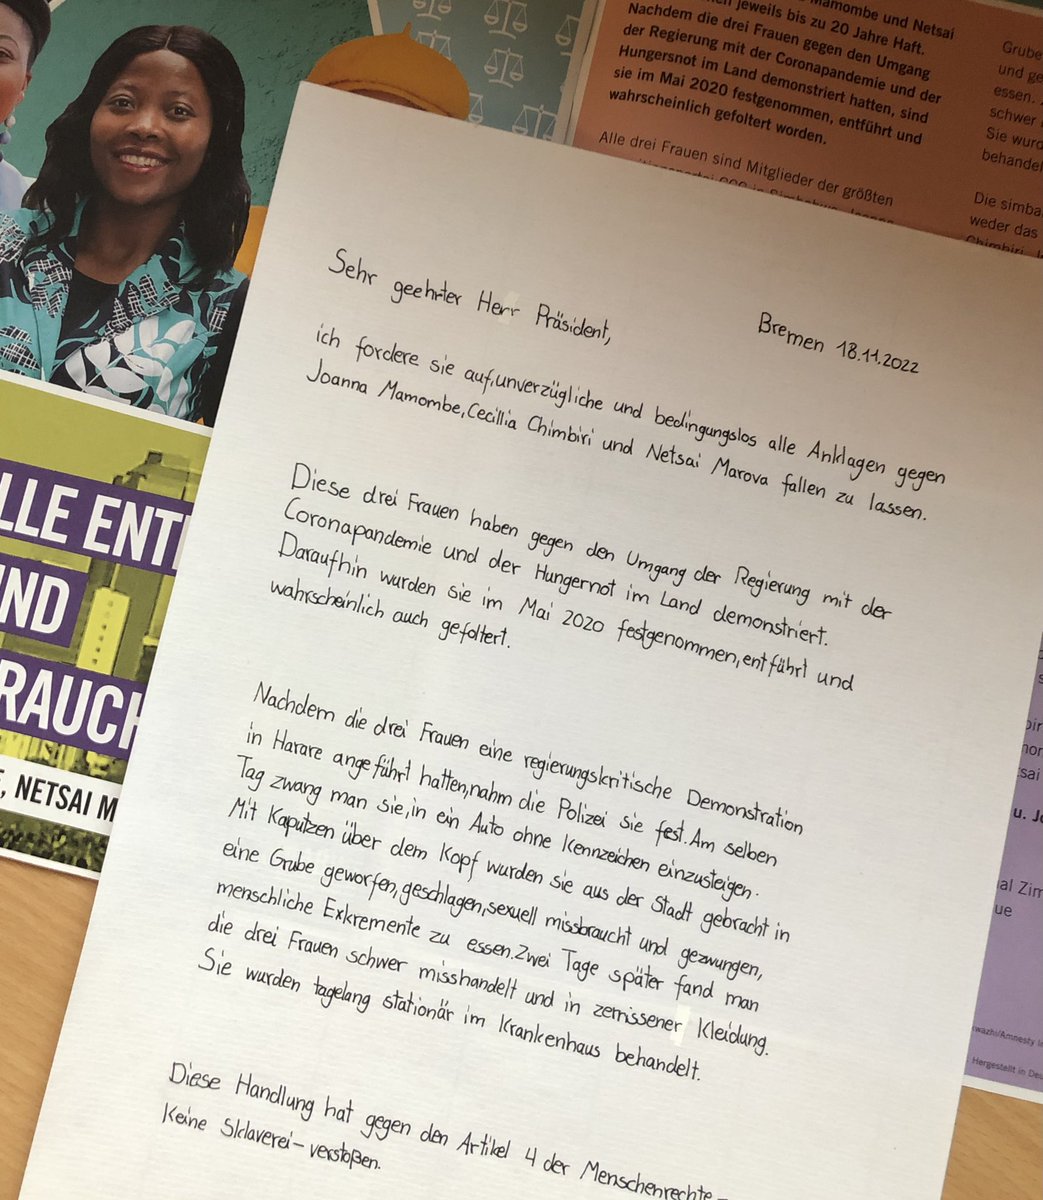 Mamombe und Netsai
jeweils bis zu 20 Jahre Haft.
Nachdem die drei Frauen gegen den Umgang
der Regierung mit der Coronapandemie und der
Hungersnot im Land demonstriert hatten, sind
sie im Mai 2020 festgenommen, entführt und
wahrscheinlich gefoltert worden.
Alle drei Frauen sind Mitglieder der größten
Grube
und ge
essen.
schwer
Sie wurd
behandel
Die simba
weder das
Chimbiri
Sehr geehrter Herr Präsident,
Bremen 18.11.2022
ich fordere sie auf,unverzügliche und bedingungslos alle Anklagen gegen
Joanna Mamombe,Cecillia Chimbiri und Netsai Marova fallen zu lassen.
Diese drei Frauen haben gegen den Umgang der Regierung mit der
Coronapandemie und der Hungernot im Land demonstriert.
Daraufhin wurden sie im Mai 2020 festgenommen,entführt und
wahrscheinlich auch gefoltert.
Nachdem die drei Frauen eine regierungskritische Demonstration
in Harare angeführt hatten,nahm die Polizei sie fest.Am selben
Tag zwang man sie,in ein Auto ohne Kennzeichen einzusteigen.
Mit Kaputzen über dem Kopf wurden sie aus der Stadt gebracht in
eine Grube geworfen,geschlagen,sexuell missbraucht und gezwungen,
menschliche Exkremente zu essen.Zwei Tage später fand man
die drei Frauen schwer misshandelt und in zerrissener Kleidung.
Sie wurden tagelang stationär im Krankenhaus behandelt.
Diese Handlung hat gegen den Artikel 4 der Menschenrechte-
Keine Sklaverei-verstoßen.
LLE ENT
ND
RAUCH
, NETSAI M
u. Jo
al Zim
ue
wazhi/Amnesty In
Hergestellt in Deu